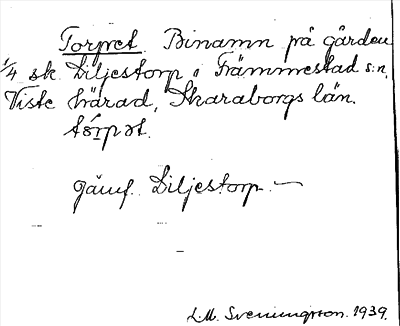 Torpet Binamn på gården
1/4 sk Liljestorp i Främmestad s:n,
Viste härad, Skaraborgs län.
tórpət.
Jämf. Liljestorp.—
L.M. Svenungsson. 1939.